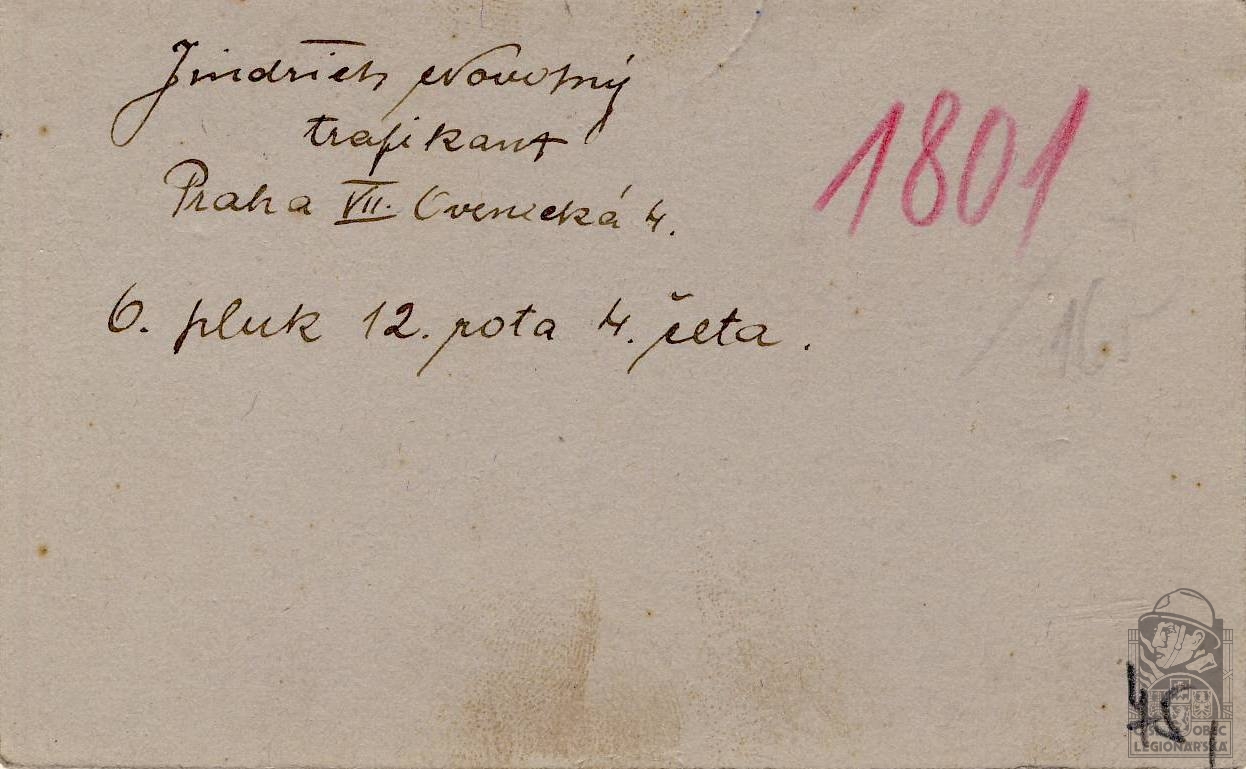 Jindřich Novotný
trafikant
Praha VII. Ovenecká 4.
1801
6. pluk 12. rota 4. četa.
16
OBEC
LEGIONÁŘSKÁ